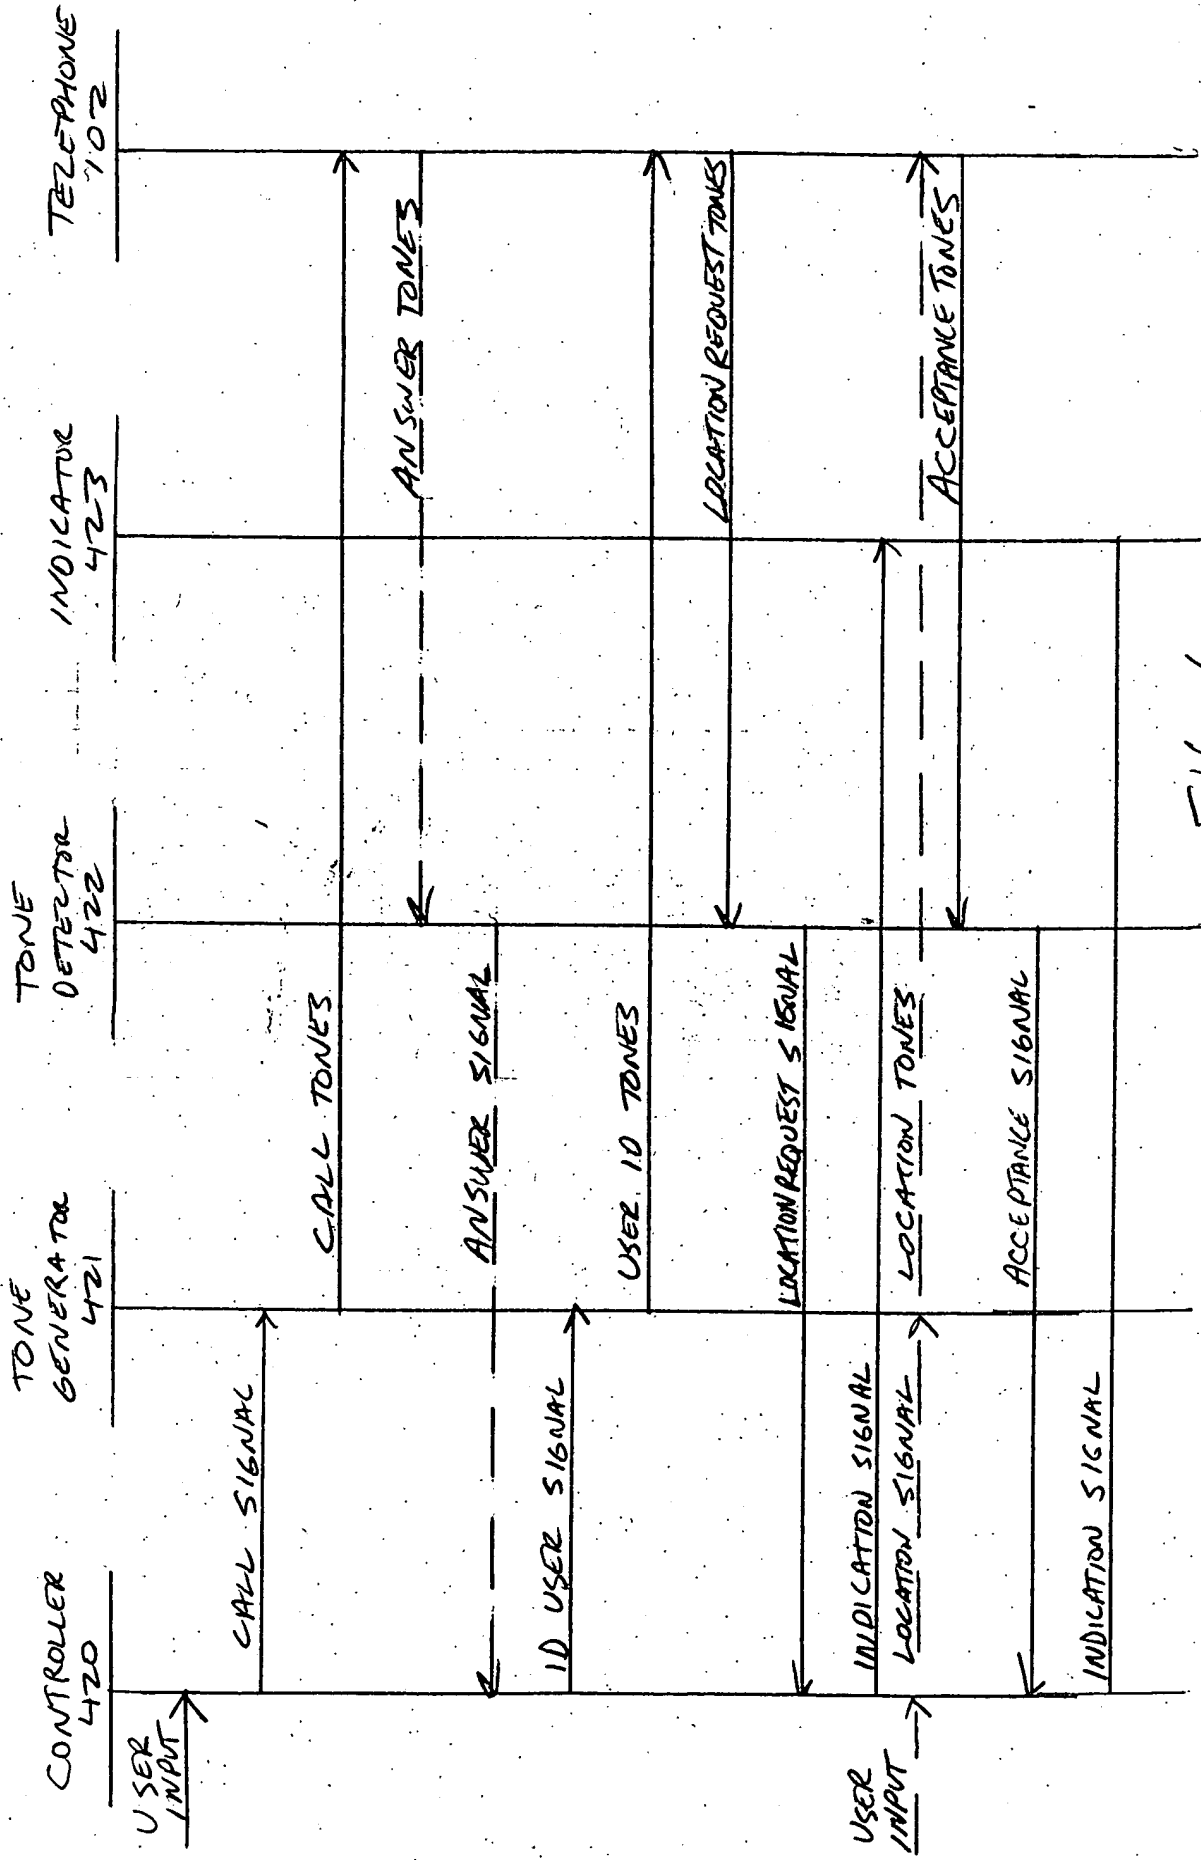 CONTROLLER
420
TONE
GENERATOR
421
TONE
DETECTOR
422
INDICATOR
423
TELEPHONE
702
USER
INPUT
CALL SIGNAL
CALL TONES
ANSWER TONES
ANSWER SIGNAL
ID USER SIGNAL
USER ID TONES
LOCATION REQUEST TONES
LOCATION REQUEST SIGNAL
INDICATION SIGNAL
USER
INPUT
LOCATION SIGNAL
LOCATION TONES
ACCEPTANCE TONES
ACCEPTANCE SIGNAL
INDICATION SIGNAL